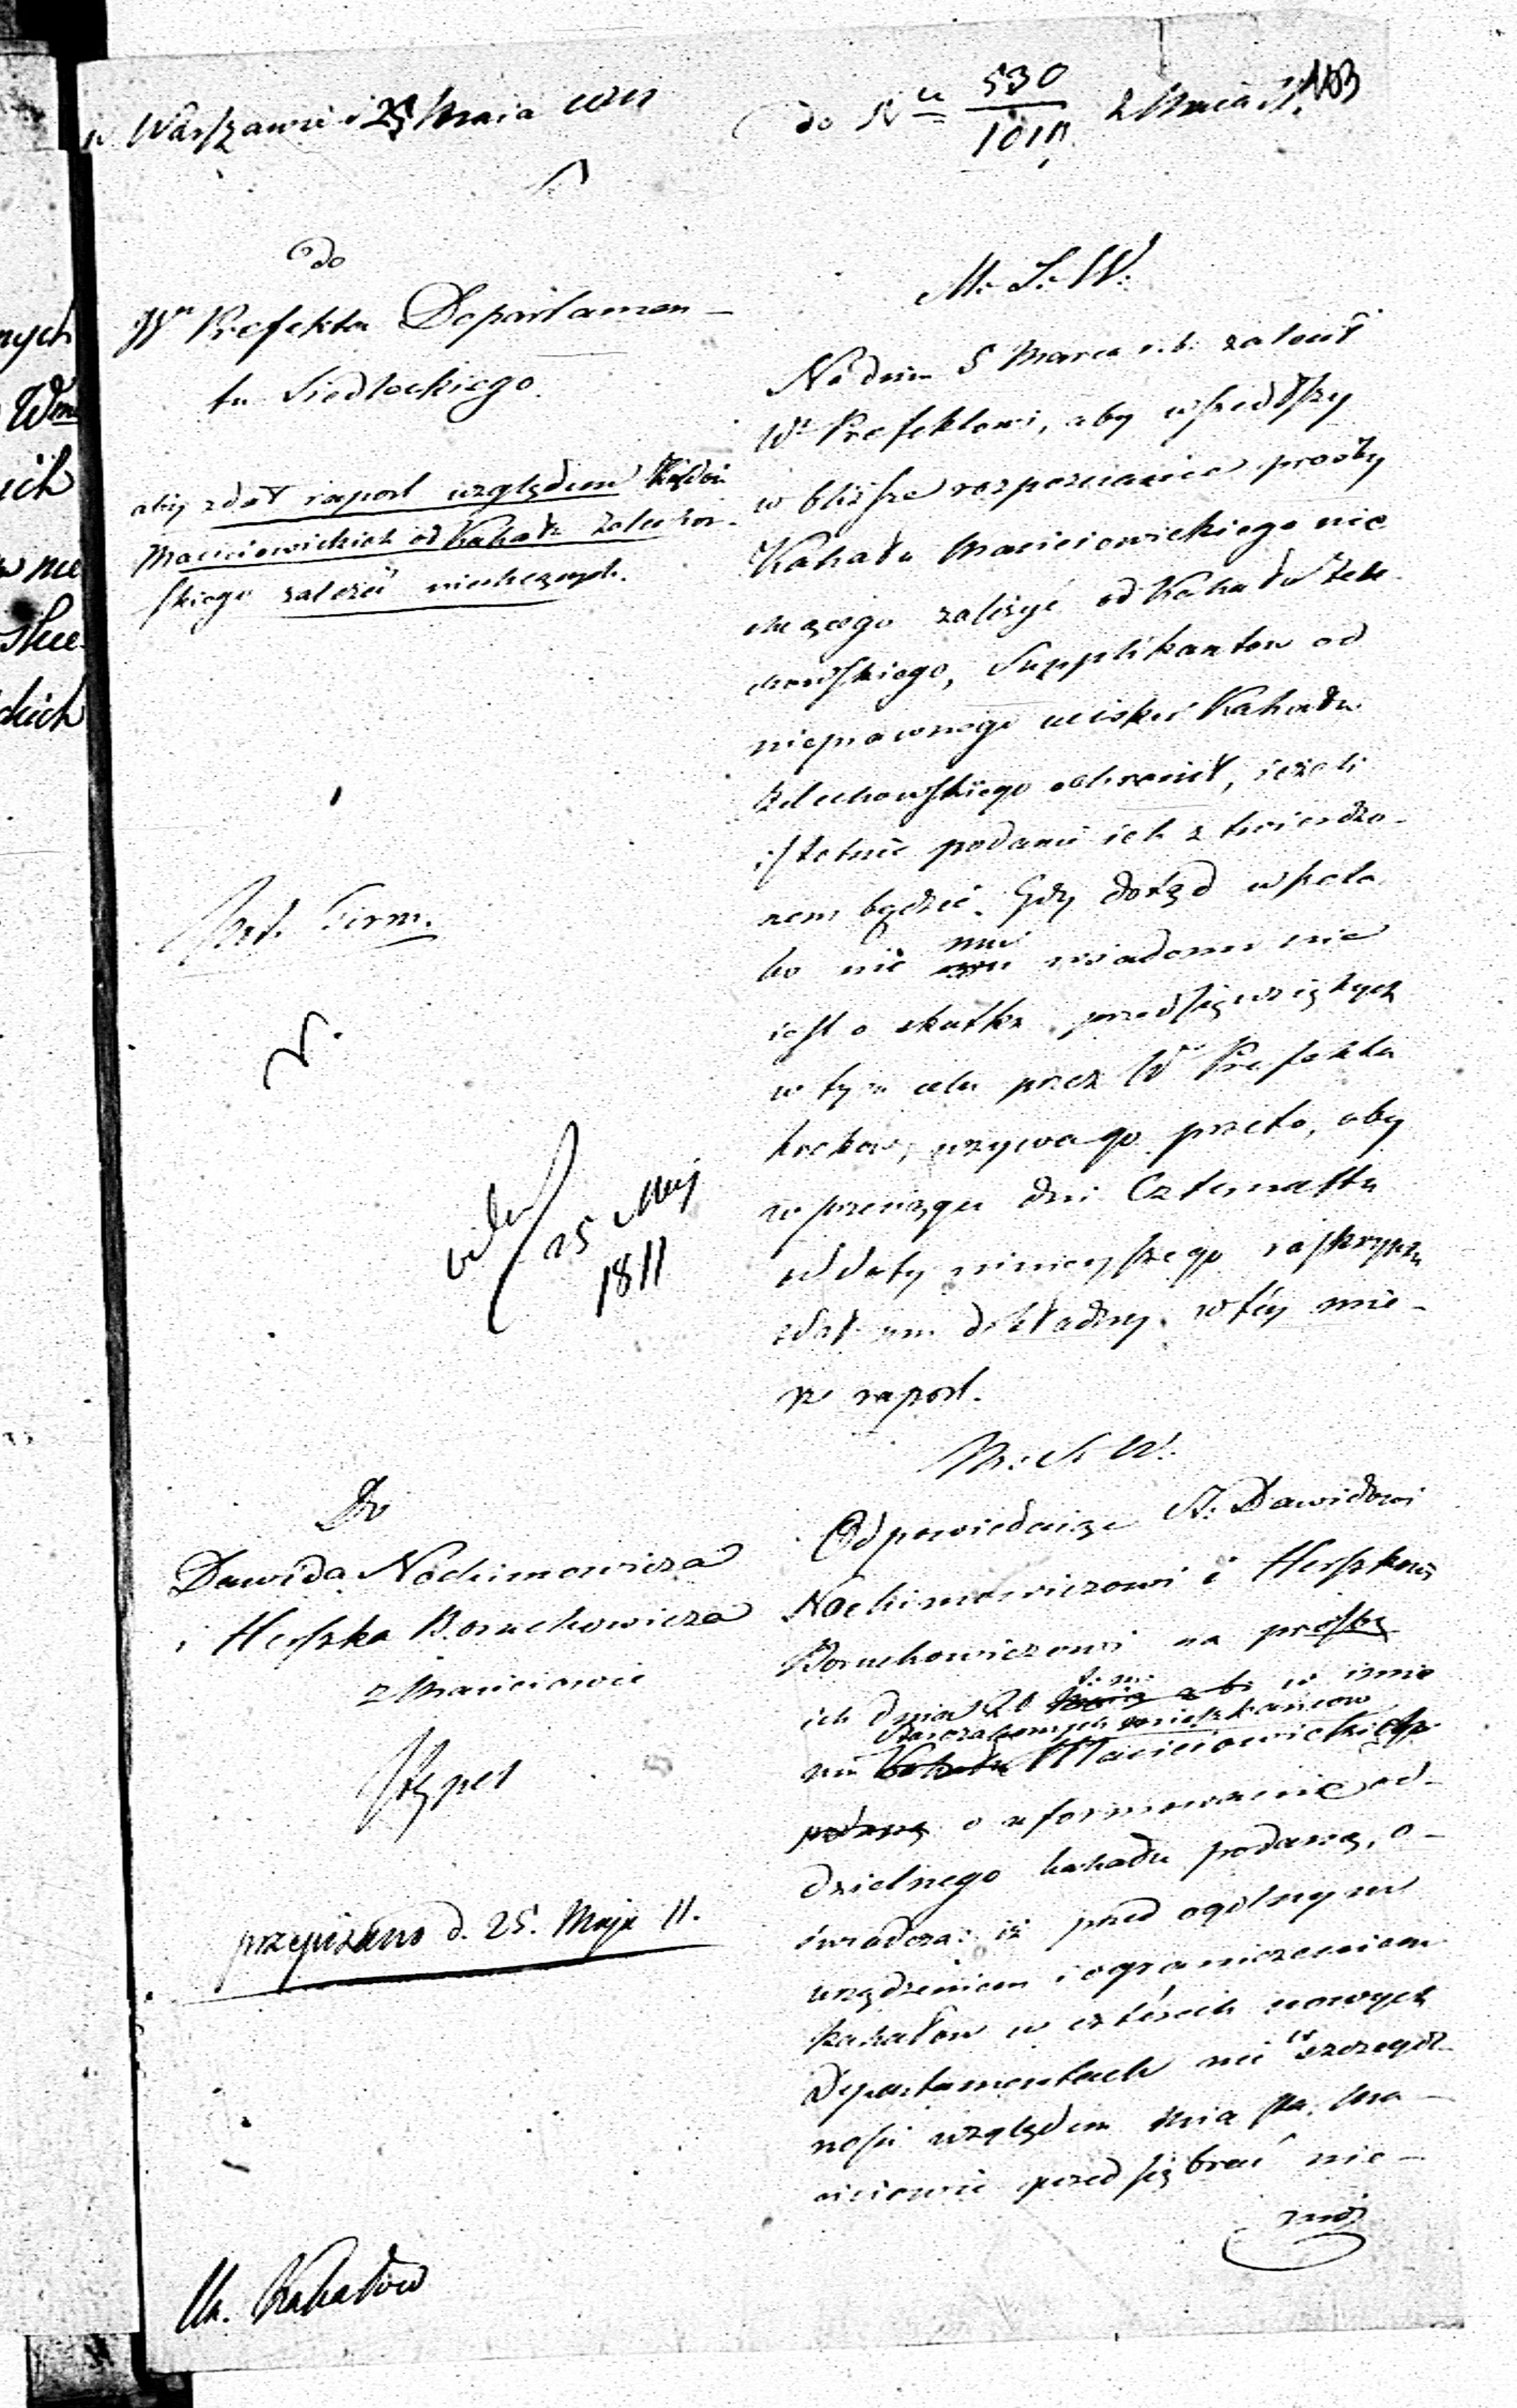 w Warszawie d 25 Maia 1811
do Nru 530/1011 2 Maia
103
do
Wo Prefekta Departamen-
tu Siedleckiego.
aby zdał raport względem Żydów
Macieiowickich od Kahału Żelechow-
skiego zależeć niechcących.
vidi 25 Maj
1811
M. S. W.
Na dniu 5 Marca r. b. zalecił
Wu Prefektowi, aby wszedłszy
w bliższe rozpoznanie prośby
Kahału Macieiowickiego nie
chcącego zależyć od Kahału Żele
chowskiego, Supplikantow od
nieprawnego ucisku Kahału
Żelechowskiego ochronił, ieżeli
istotnie podanie ich ztwierdzo-
nem będzie. Gdy dotąd
nie mu wiadomo nie
iest o skutku przedsięwziętych
w tym celu przez W Prefekta
krokow, wzywa go przeto, aby
w przeciągu dni Czternastu
od daty ninieyszego reskryptu
zdał mu dokładny w tey mie-
rze raport.
M. S. W.
Do
Dawida Nochimowicza
i Herszka Boruchowicza
z Macieiowic
Stępel
przepisano d. 25. Maja 11.
Odpowiedaiąc St. Dawidowi
Nochimowiczowi i Herszkowi
Boruchowiczowi na prośbę
ich dnia 20 t. m. w imie
niu Starozakonnych mieszkańcow Kahału Macieiowickich
podaną o uformowanie od-
dzielnego kahału podaną, o-
świadcza: iż przed ogólnym
urządzeniem i ograniczeniem
kahałow w czterech nowych
Departamentach nic w szczegól-
ności względem Miasta Ma-
cieiowic przedsiębrać nie-
może
Kahałow